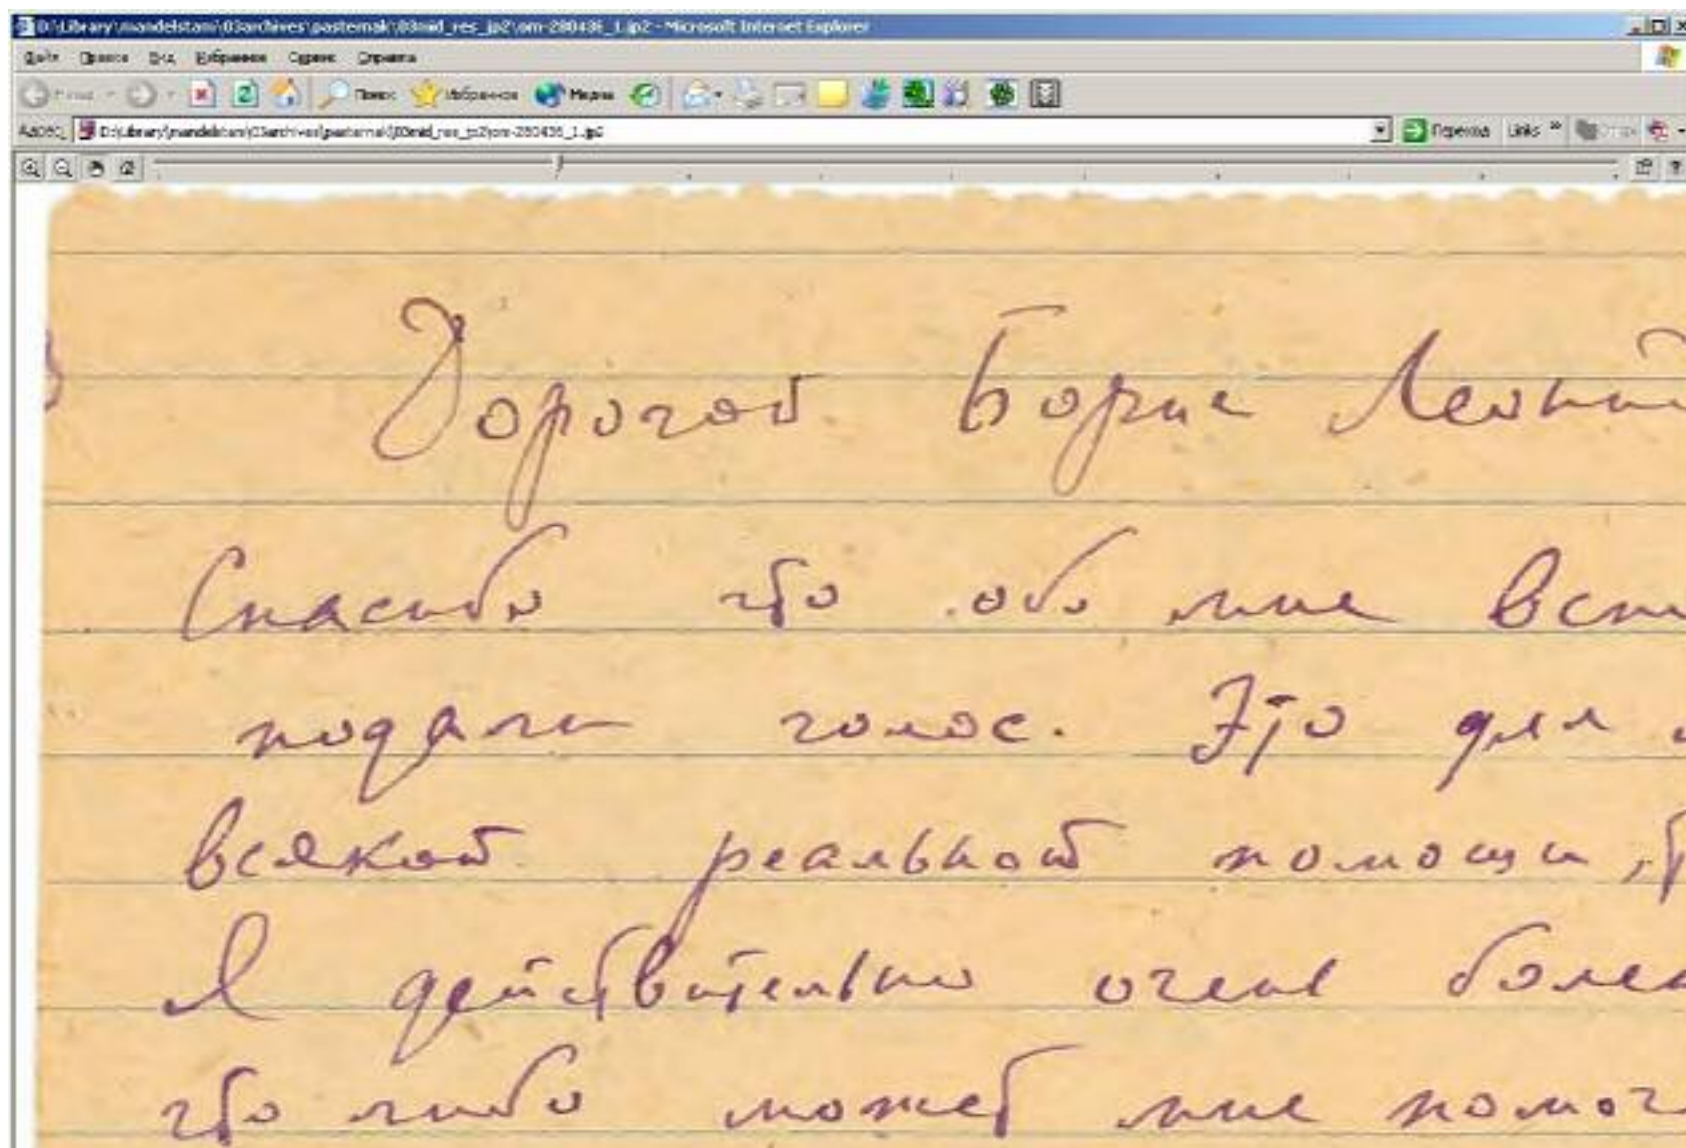 D:\Library\mandelstam\03archives\pasternak\03mid_res_jp2\om-280436_1.jp2 - Microsoft Internet Explorer
Файл Правка Вид Избранное Сервис Справка
Назад Поиск Избранное Медиа
Адрес D:\Library\mandelstam\03archives\pasternak\03mid_res_jp2\om-280436_1.jp2 Переход Links »
Дорогой Борис Леонид
Спасибо что обо мне всп
подали голос. Это для
всякой реальной помощи,
Я действительно очень болен
что либо может мне помоч